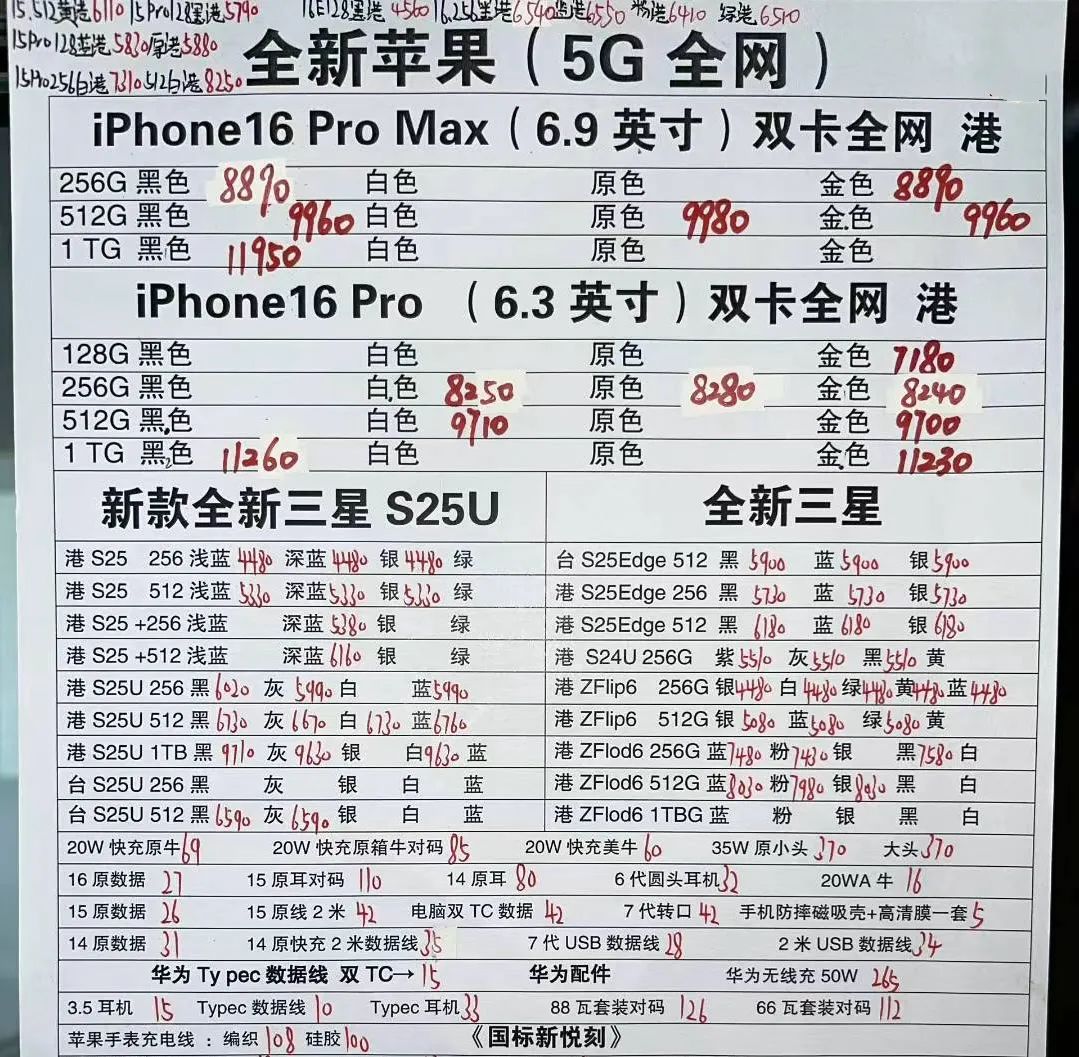 15.512黄港6110 15Pro128黑港5790 16E128黑港4560 16.256黑港6540蓝港6550 粉港6410 绿港6510
15Pro128蓝港5830/原港5880
15Pro256白港7310 512白港8250
全新苹果（5G 全网）
iPhone16 Pro Max（6.9 英寸）双卡全网 港
256G 黑色 8890 白色 原色 金色 8890
512G 黑色 9960 白色 原色 9980 金色 9960
1 TG 黑色 11950 白色 原色 金色
iPhone16 Pro （6.3 英寸）双卡全网 港
128G 黑色 白色 原色 金色 7180
256G 黑色 白色 8250 原色 8280 金色 8240
512G 黑色 白色 9710 原色 金色 9700
1 TG 黑色 11260 白色 原色 金色 11230
新款全新三星 S25U
港 S25 256 浅蓝 4480 深蓝 4480 银 4480 绿
港 S25 512 浅蓝 5330 深蓝 5330 银 5330 绿
港 S25 +256 浅蓝 深蓝 5380 银 绿
港 S25 +512 浅蓝 深蓝 6160 银 绿
港 S25U 256 黑 6020 灰 5990 白 蓝 5990
港 S25U 512 黑 6730 灰 6670 白 6730 蓝 6760
港 S25U 1TB 黑 9710 灰 9630 银 白 9630 蓝
台 S25U 256 黑 灰 银 白 蓝
台 S25U 512 黑 6590 灰 6590 银 白 蓝
全新三星
台 S25Edge 512 黑 5900 蓝 5900 银 5900
港 S25Edge 256 黑 5730 蓝 5730 银 5730
港 S25Edge 512 黑 6180 蓝 6180 银 6180
港 S24U 256G 紫 5510 灰 5510 黑 5510 黄
港 ZFlip6 256G 银 4480 白 4480 绿 4480 黄 4480 蓝 4480
港 ZFlip6 512G 银 5080 蓝 5080 绿 5080 黄
港 ZFlod6 256G 蓝 7480 粉 7430 银 黑 7580 白
港 ZFlod6 512G 蓝 8030 粉 7980 银 8030 黑 白
港 ZFlod6 1TBG 蓝 粉 银 黑 白
20W 快充原牛 69 20W 快充原箱牛对码 85 20W 快充美牛 60 35W 原小头 370 大头 370
16 原数据 27 15 原耳对码 110 14 原耳 80 6 代圆头耳机 32 20WA 牛 16
15 原数据 26 15 原线 2 米 42 电脑双 TC 数据 42 7 代转口 42 手机防摔磁吸壳+高清膜一套 5
14 原数据 31 14 原快充 2 米数据线 35 7 代 USB 数据线 28 2 米 USB 数据线 34
华为 Ty pec 数据线 双 TC→ 15 华为配件 华为无线充 50W 265
3.5 耳机 15 Typec 数据线 10 Typec 耳机 33 88 瓦套装对码 126 66 瓦套装对码 112
苹果手表充电线 ：编织 108 硅胶 100 《国标新悦刻》